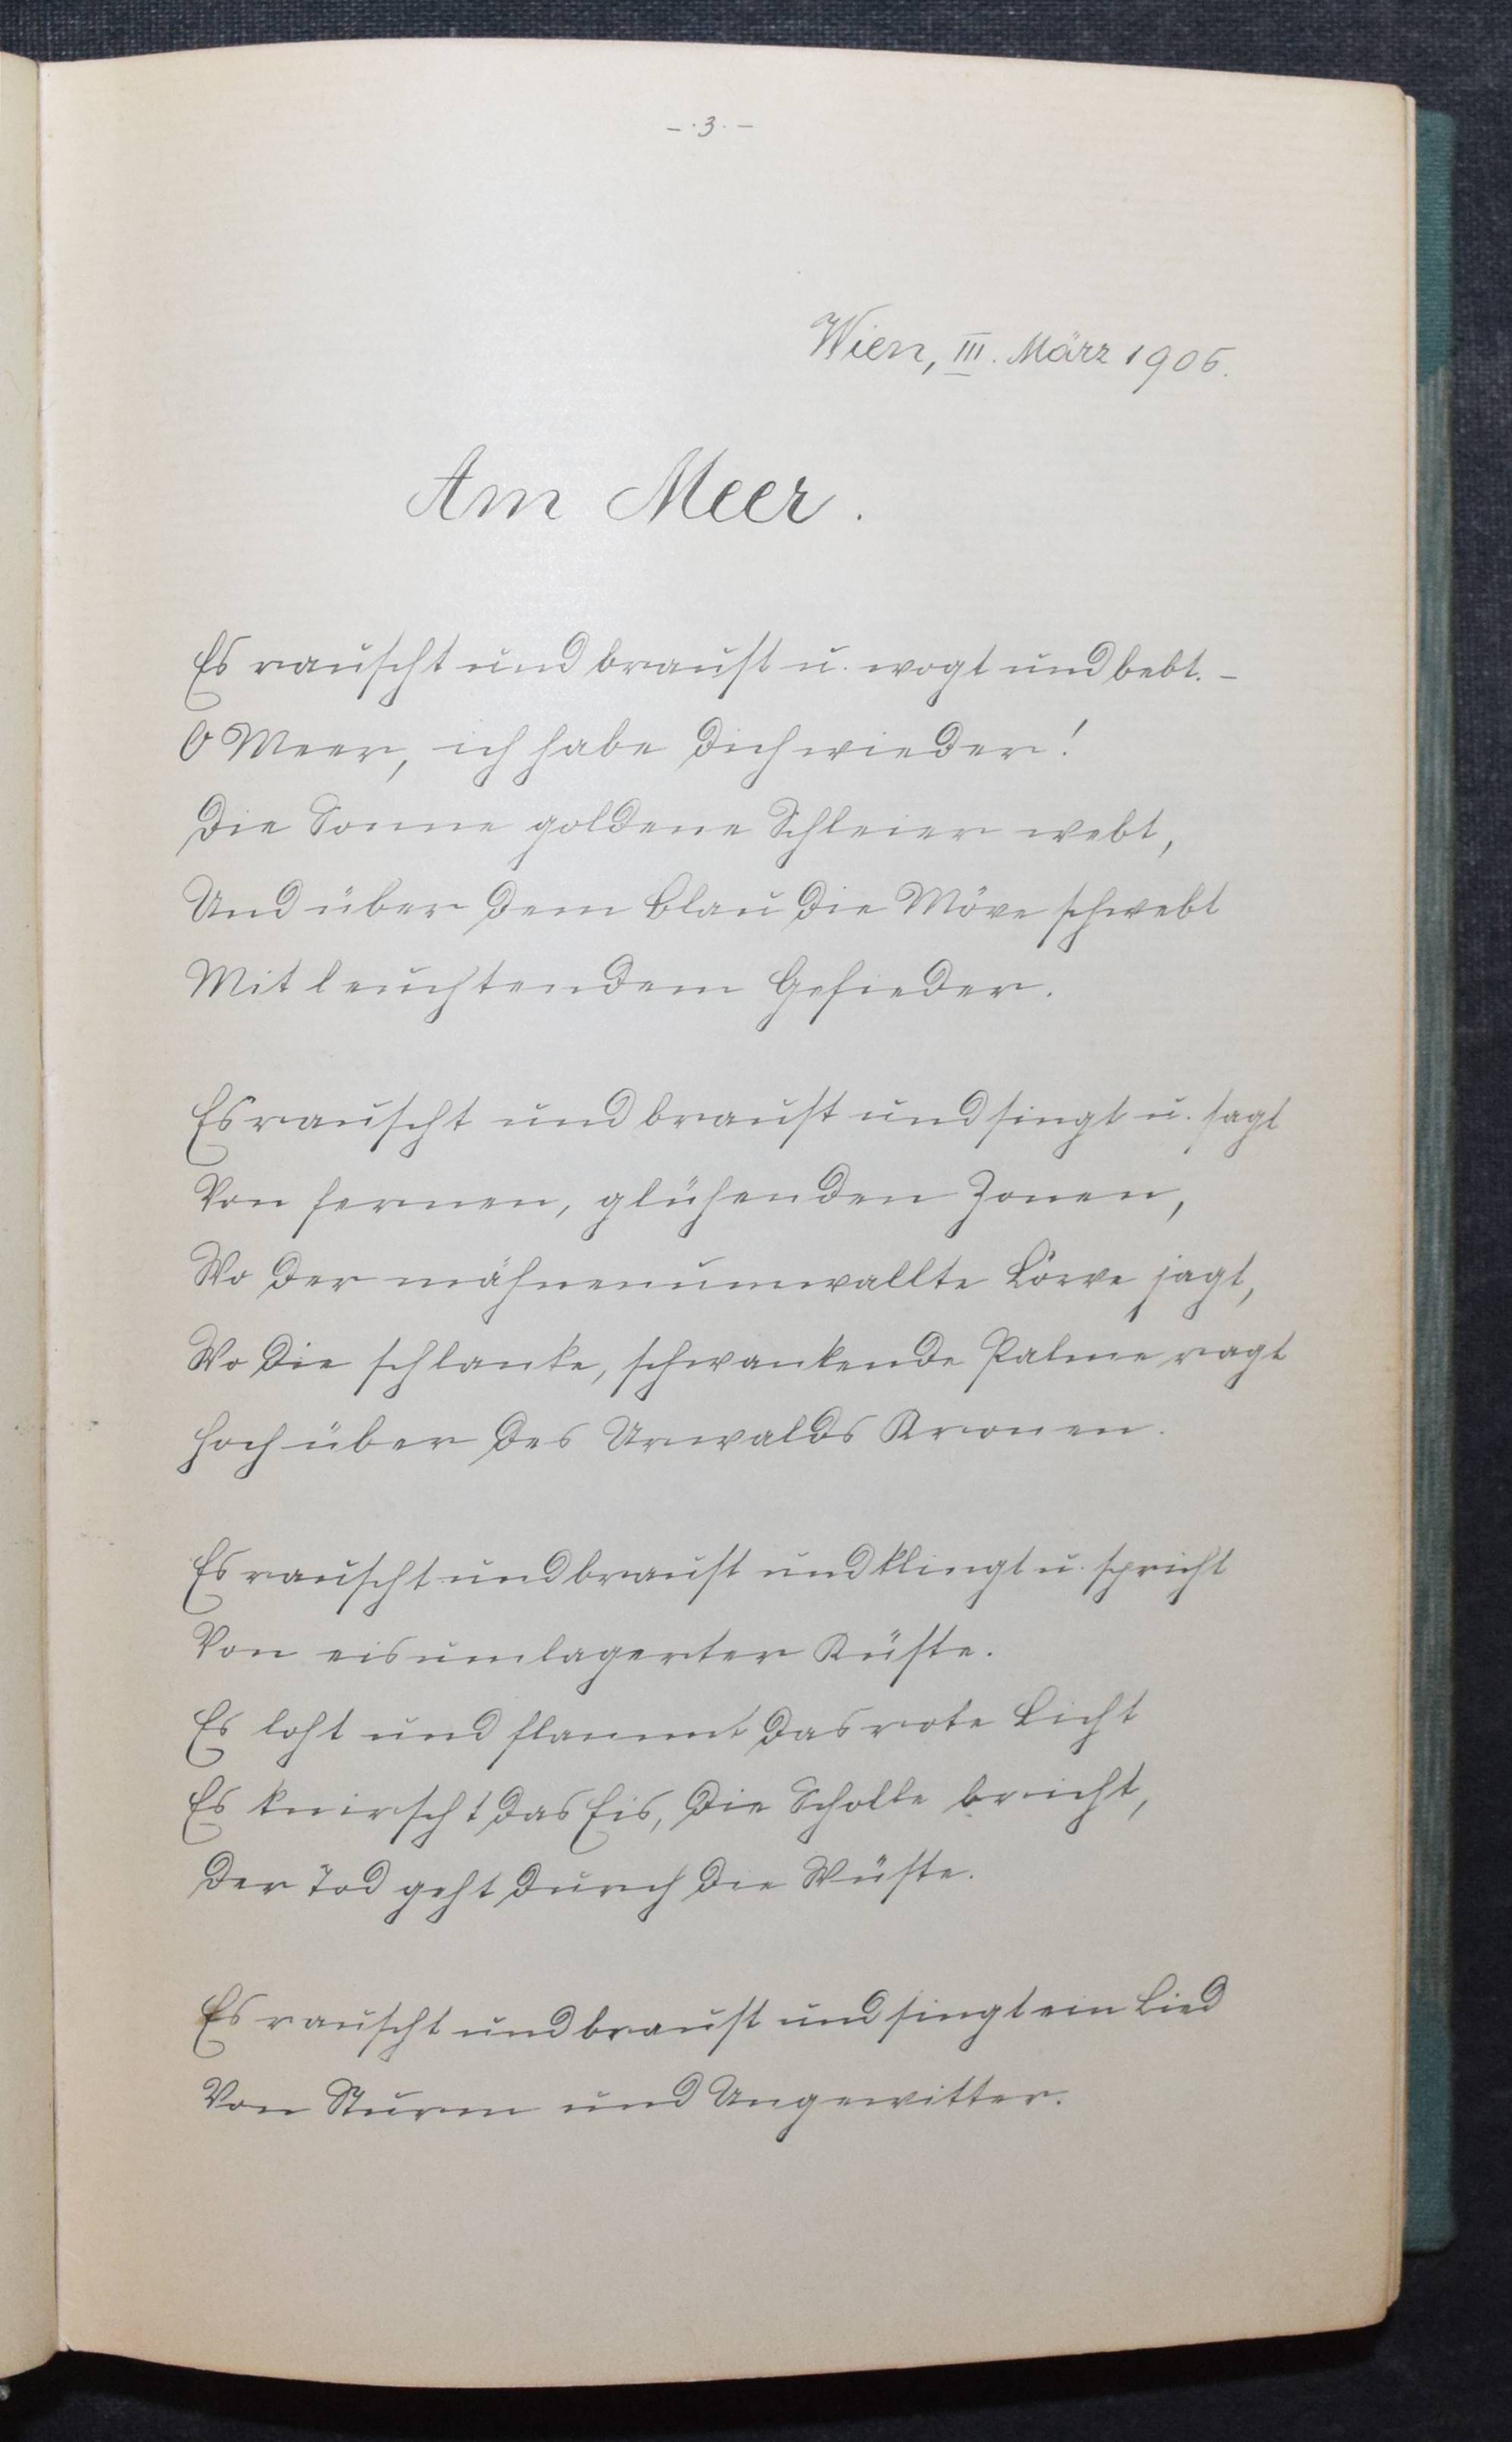 - · 3 · -
Wien, III. März 1906.
Am Meer.
Es rauscht und braust u. wogt und bebt. -
O Meer, ich habe dich wieder!
Die Sonne goldene Schleier webt,
Und über dem Blau die Möve schwebt
Mit leuchtendem Gefieder.
Es rauscht und braust und singt u. sagt
Von fernen, glühenden Zonen,
Wo der mähnenumwallte Löwe jagt,
Wo die schlanke, schwankende Palme ragt
Hoch über des Urwalds Kronen.
Es rauscht und braust und klingt u. spricht
Von eisumlagerter Küste.
Es loht und flammt das rote Licht
Es knirscht das Eis, die Scholle bricht,
Der Tod geht durch die Wüste.
Es rauscht und braust und singt ein Lied
Von Sturm und Ungewitter.